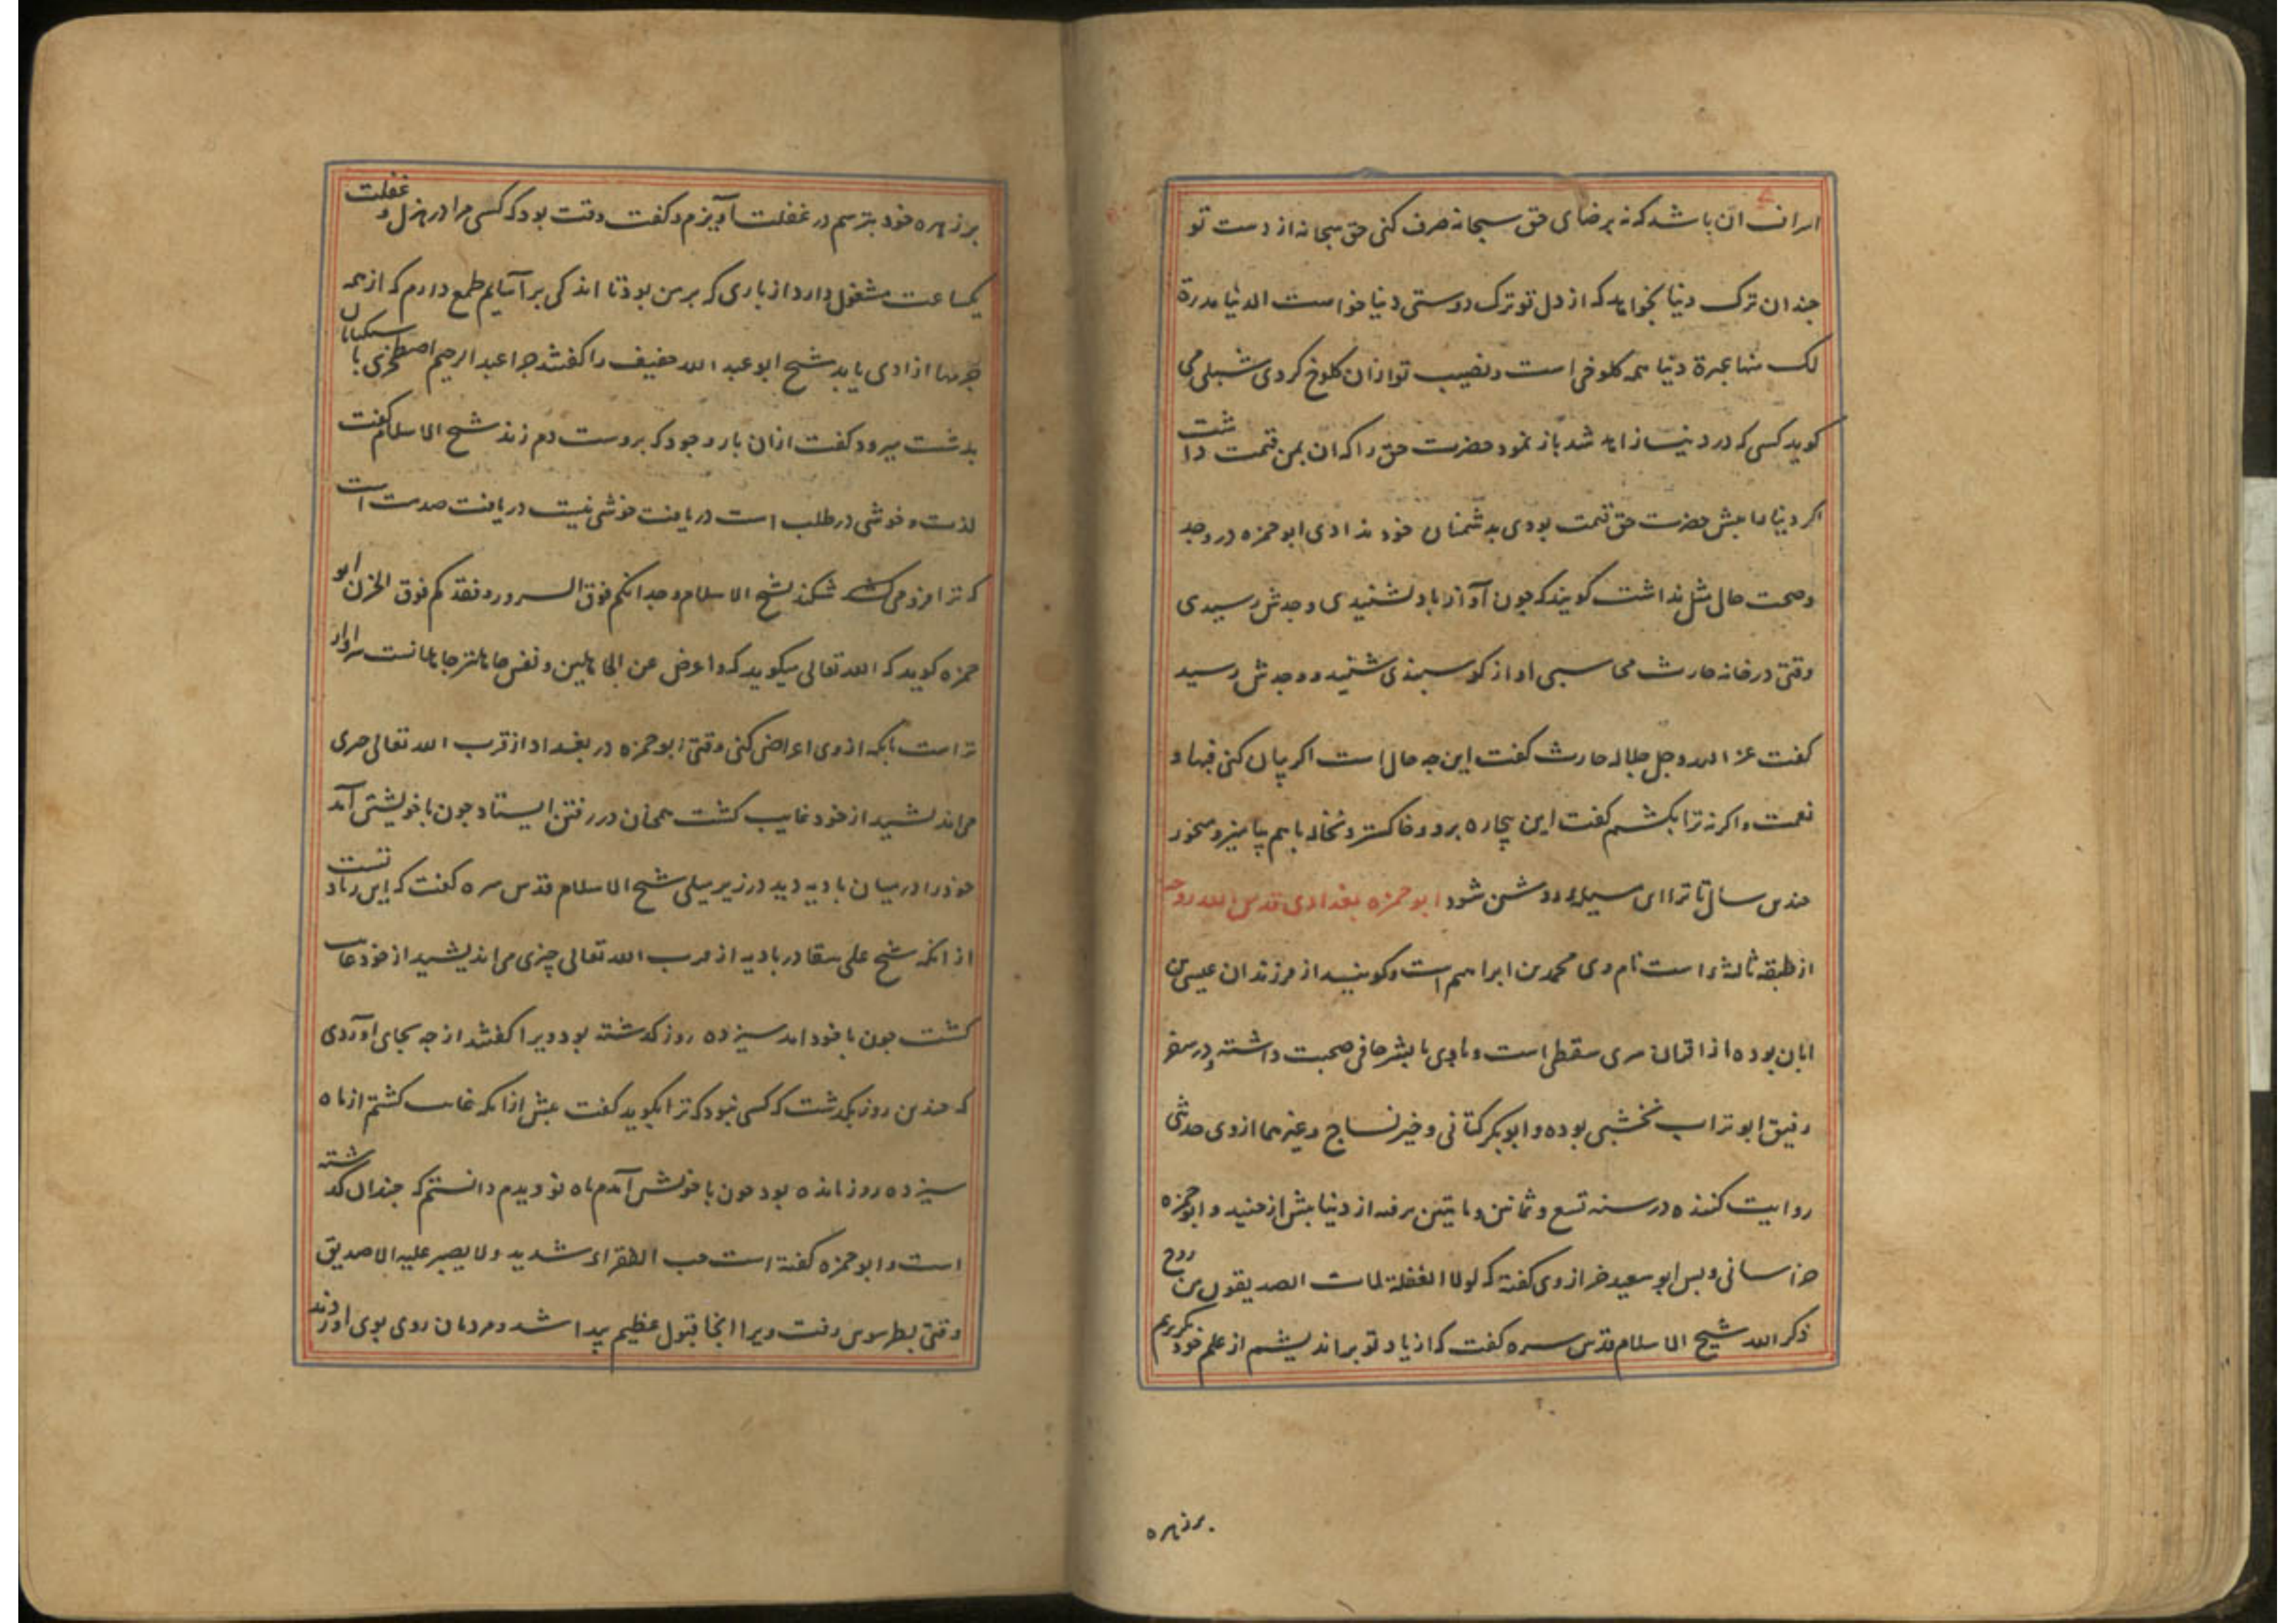 اسراف ان باشد که نه برضای حق سبحانه صرف کنی حق سبحانه از دست تو
جندان ترک دنیا نخواهد که از دل تو ترک دوستی دنیا خواست الدنیا مدرة
لک منها عبرة دنیا همه کلوخی است و نصیب تو ازان کلوخ کردی شبلی می
کوید کسی که در دنیا زاهد شد باز نمود حضرت حق را که ان بمن قیمت داشت
اکر دنیا را بیش حضرت حق قیمت بودی بدشمنان خود ندادی ابو حمزه در وجد
وصحت حال مثل نداشت کویند که جون آواز باد بشنیدی وجدش رسیدی
وقتی در خانه حارث محاسبی اواز کوسبندی شنید و وجدش رسید
کفت عز الله وجل جلاله حارث کفت این جه حال است اکر بیان کنی فبها و
نعمت واکرنه ترا بکشم کفت این بیچاره برو و خاکستر و نخاله باهم بیامیز و میخور
جندین سال تا ترا این مسیله روشن شود ابو حمزه بغدادی قدس الله روحه
از طبقه ثالثه است نام وی محمد بن ابراهیم است وکویند از فرزندان عیسی بن
ابان بوده از اقران سری سقطی است و با وی با بشر حافی صحبت داشته و در سفر
رفیق ابو تراب نخشبی بوده و ابو بکر کتانی و خیر نساج و غیرهما از وی حدیثی
روایت کننده در سنه تسع و ثمانین و مایتین برفته از دنیا بیش از جنید و ابو حمزه
خراسانی و بس ابو سعید خراز وی کفته که لولا الغفلة لمات الصدیقون من روح
ذکر الله شیخ الاسلام قدس سره کفت که از یاد تو براندیشم از علم خود بکریزم
برزهره
برزهره خود بترسم در غفلت آویزم و کفت وقت بود که کسی مرا در هزل و غفلت
یکساعت مشغول دارد از باری که بر من بود تا اندکی برآسایم طمع دارم که از همه
جرمها ازادی یابد شیخ ابو عبد الله خفیف را کفتند جرا عبد الرحیم اصطخری با سکبانان
بدشت میرود کفت ازان بار وجود که بروست دم زند شیخ الاسلام کفت
لذت و خوشی در طلب است در یافت خوشی نیست در یافت صدمت است
که ترا فرو می شکند شیخ الاسلام وجدانکم فوق السرور و فقدکم فوق الحزن ابو
حمزه کوید که الله تعالی میکوید که واعرض عن الجاهلین و نفس جاهلتر جاهلانست سزاوار
تراست بانکه از وی اعراض کنی وقتی ابو حمزه در بغداد از قرب الله تعالی جزی
می اندیشید از خود غایب کشت همجنان در رفتن ایستاد جون با خویشتن آمد
خود را در میان بادیه دید در زیر میلی شیخ الاسلام قدس سره کفت که این زیادتست
از انکه شیخ علی سقا در بادیه از قرب الله تعالی چیزی می اندیشید از خود غایب
کشت جون با خود امد سیزده روز کذشته بود ویرا کفتند از جه بجای آوردی
که جندین روز بکذشت که کسی نبود که ترا بکوید کفت بیش ازانکه غایب کشتم از ماه
سیزده روز مانده بود جون با خویش آمدم ماه نو دیدم دانستم که جندان کذشته
است و ابو حمزه کفته است حب الفقراء شدید ولا یصبر علیه الا صدیق
وقتی بطرسوس رفت ویرا انجا قبول عظیم بیدا شد و مردمان روی بوی اوردند